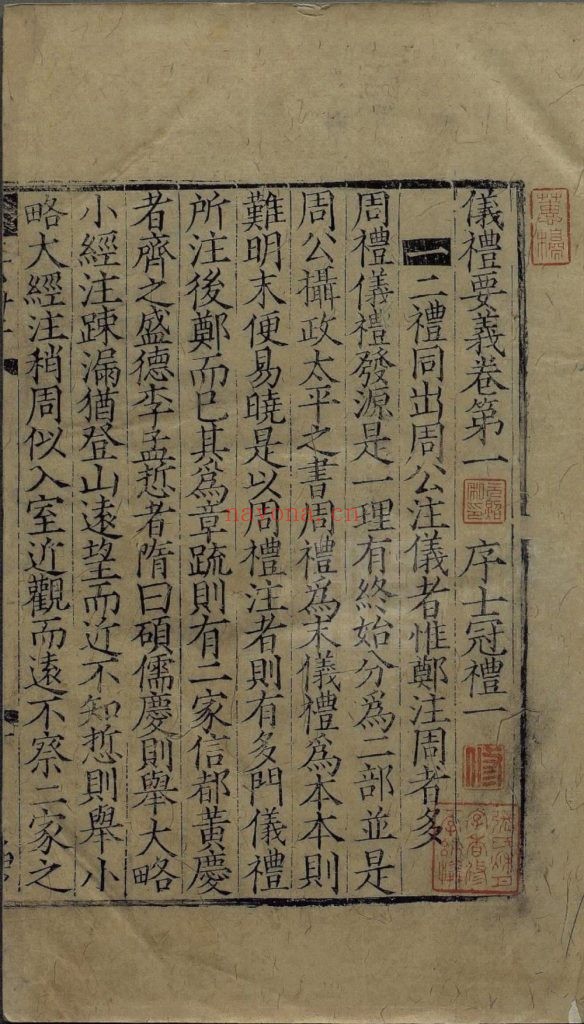 儀禮要義卷第一 序士冠禮一
一 二禮同出周公注儀者惟鄭注周者多
周禮儀禮發源是一理有終始分為二部並是
周公攝政太平之書周禮為末儀禮為本本則
難明末便易曉是以周禮注者則有多門儀禮
所注後鄭而已其為章疏則有二家信都黃慶
者齊之盛德李孟悊者隋曰碩儒慶則舉大略
小經注踈漏猶登山遠望而近不知悊則舉小
略大經注稍周似入室近觀而遠不察二家之
nayona.cn